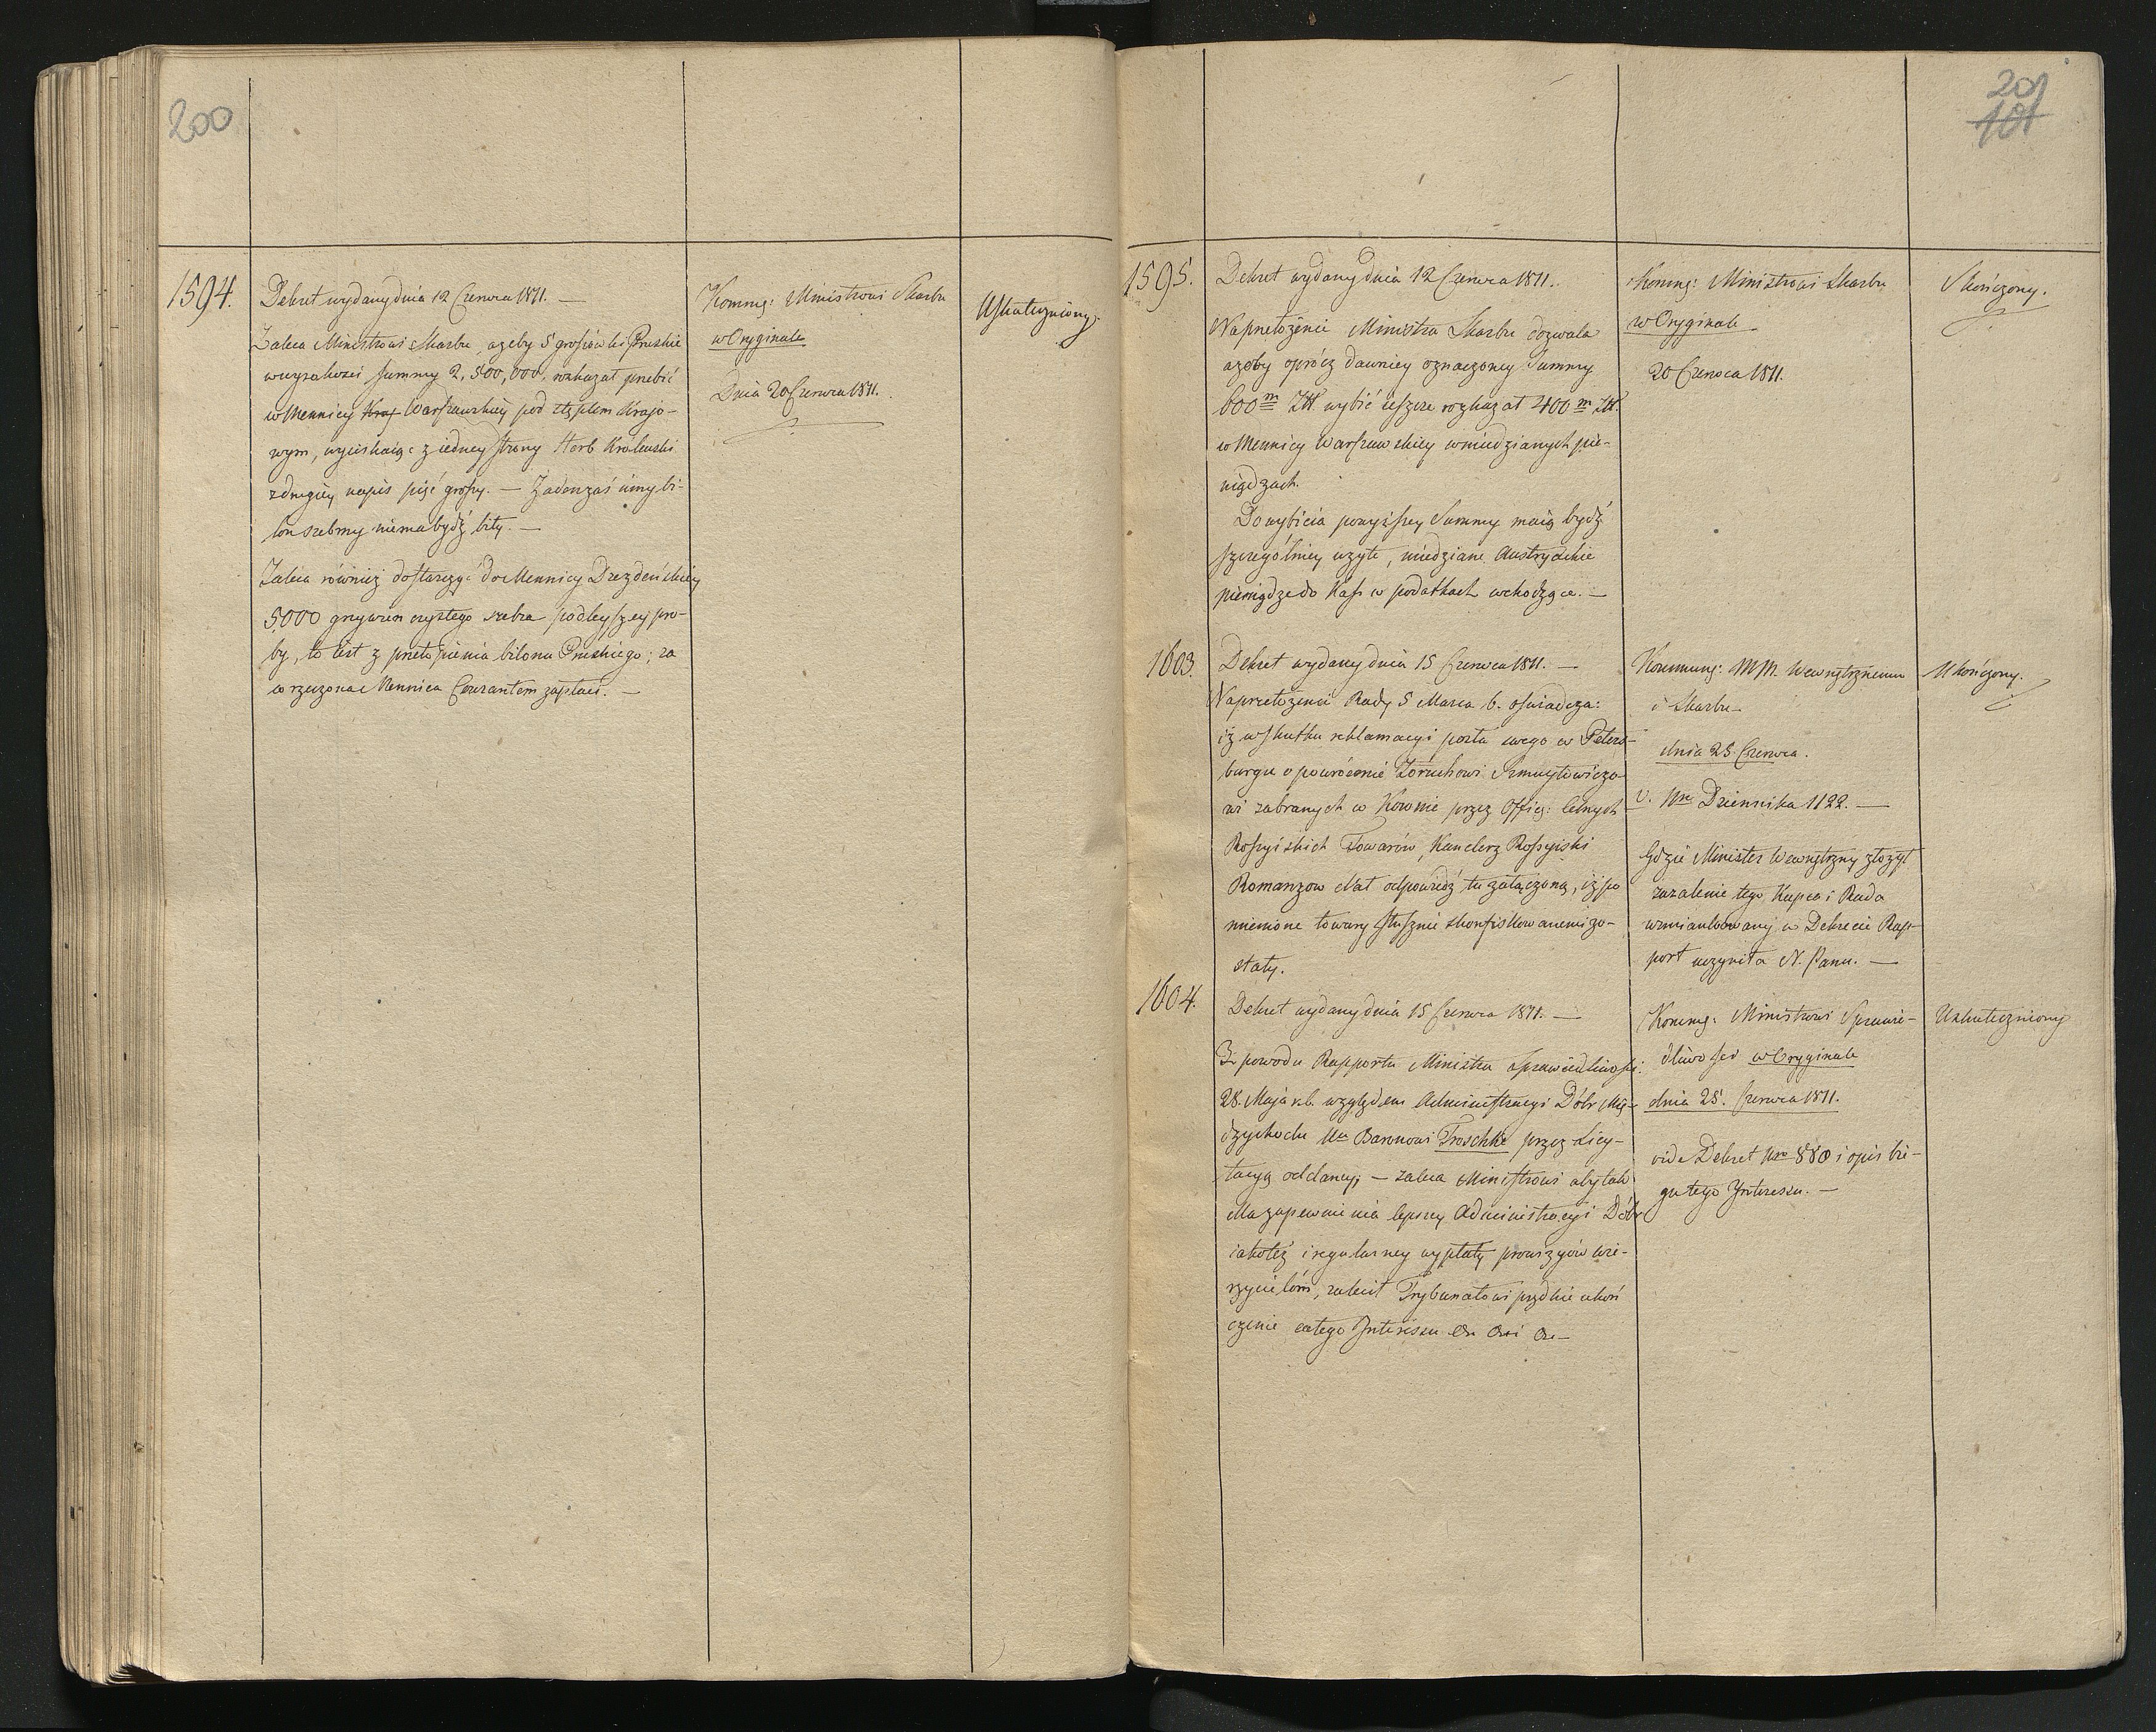 200
1594.
Dekret wydany dnia 12 Czerwca 1811. —
Zaleca Ministrowi Skarbu, ażeby 5 groszówki Pruskie
w wysokości Summy 2,500,000. rozkazał przebić
w Mennicy Kraj Warszawskiey pod stęplem Krajo-
wym, wyciskaiąc z iedney strony Herb Królewski
z drugiey napis pięć groszy. — Żaden zaś inny bi-
lon srebrny niema bydź bity. —
Zaleca również dostarczyć do Mennicy Drezdeńskiey
5,000 grzywien czystego srebra podleyszey pro-
by, to iest z przetopienia bilonu Pruskiego; za
w rzeczona Mennica Courantem zapłaci. —
Kommg: Ministrowi Skarbu
w Oryginale
Dnia 20 Czerwca 1811.
Uskuteczniony.
201
101
1595.
Dekret wydany dnia 12 Czerwca 1811.
Na przełożenie Ministra Skarbu dozwala
ażeby oprócz dawniey oznaczoney Summy
600m Złł. wybić ieszcze rozkazał 400m Złł.
w Mennicy Warszawskiey w miedzianych pie-
niądzach.
Do wybicia powyższey Summy maią bydź
szczególniey użyte, miedziane Austryackie
pieniądze do Kass w podatkach wchodzące. —
Kommg: Ministrowi Skarbu
w Oryginale
20 Czerwca 1811.
Skończony.
1603.
Dekret wydany dnia 15 Czerwca 1811. —
Na przełożenie Rady 5 Marca b. oświadcza:
iż w skutku reklamacyi posła swego w Peters-
burgu o powrócenie Zoruchowi Szmuylowiczo-
wi zabranych w Kownie przez Offic: Celnych
Rossyiskich Towarów, Kanclerz Rossyiski
Romanzow dał odpowiedź tu załączoną, iż po
mienione towary słusznie skonfiskowanemi zo-
stały.
Kommung: MM. Wewnętrznemu
i Skarbu
dnia 25 Czerwca.
v. Nro Dziennika 1122. —
Gdzie Minister Wewnętrzny złożył
zażalenie tego Kupca i Rada
wzmiankowany w Dekrecie Rap-
port uczyniła N. Panu. —
Ukończony.
1604.
Dekret wydany dnia 15 Czerwca 1811. —
Z powodu Rapportu Ministra Sprawiedliwości:
28. Maja r.b. względem Administracyi Dóbr Mię-
dzychodu Baronowi Troschke przez Licy-
tacyą oddaney; — zaleca Ministrowi aby tak
dla zapewnienia lepszey Administracyi Dóbr
iakoteż i regularney wypłaty prowizyów wie-
rzycielóm, zalecił Trybunałowi prędkie ukoń
czenie całego Interessu
Kommg: Ministrowi Sprawie-
dliwości w Oryginale
dnia 25. Czerwca 1811.
vide Dekret Nro 880 i opis bie-
gu tego Interessu. —
Uskuteczniony